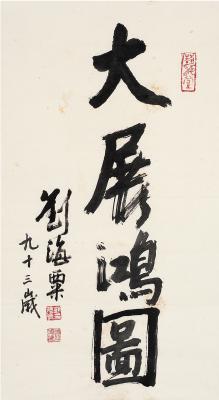 大展鴻圖
劉海粟
九十三歲